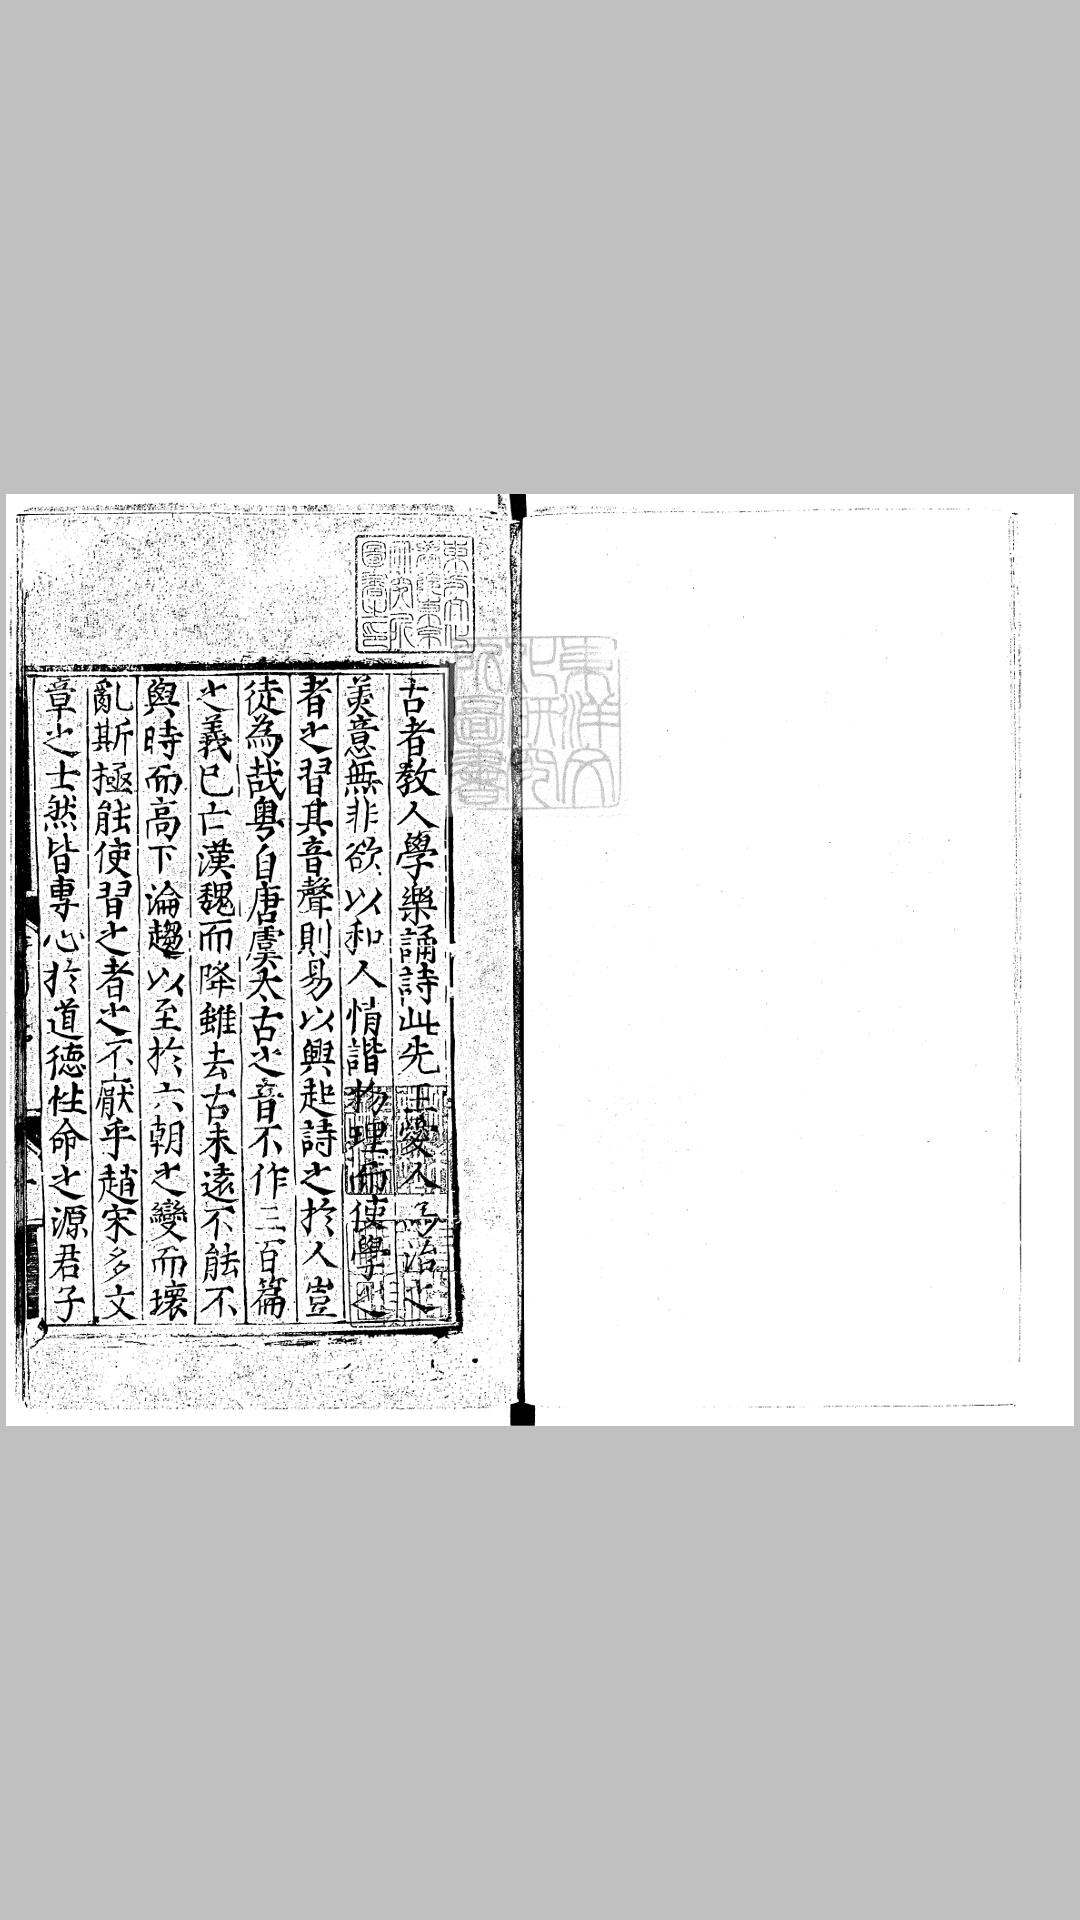 古者教人學樂誦詩此先王愛人為治之
美意無非欲以和人情諧物理而使學之
者之習其音聲則易以興起詩之於人豈
徒為哉粵自唐虞太古之音不作三百篇
之義已亡漢魏而降雖去古未遠不能不
與時而高下淪趨以至於六朝之變而壞
亂斯極能使習之者之不厭乎趙宋多文
章之士然皆專心於道德性命之源君子